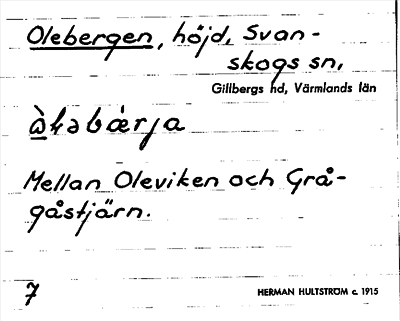 Olebergen, höjd, Svan-
skogs sn,
Gillbergs hd, Värmlands län
Mellan Oleviken och Grå-
gåstjärn.
7
HERMAN HULTSTRÖM c. 1915